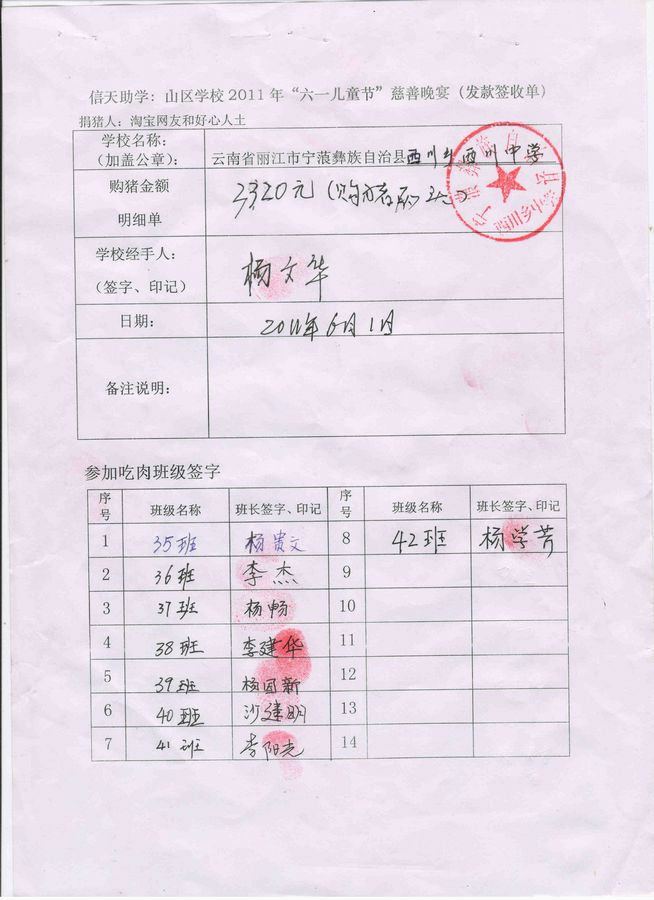 信天助学：山区学校2011年“六一儿童节”慈善晚宴（发款签收单）
捐猪人：淘宝网友和好心人土
学校名称：
（加盖公章）：
云南省丽江市宁蒗彝族自治县西川乡西川中学
购猪金额
明细单
3320元（购猪
学校经手人：
（签字、印记）
杨文华
日期：
2011年6月1日
备注说明：
参加吃肉班级签字
序号 班级名称 班长签字、印记 序号 班级名称 班长签字、印记
1 35班 杨贵文 8 42班 杨学芳
2 36班 李杰 9
3 37班 杨畅 10
4 38班 李建华 11
5 39班 杨国新 12
6 40班 沙建明 13
7 41班 李阳光 14